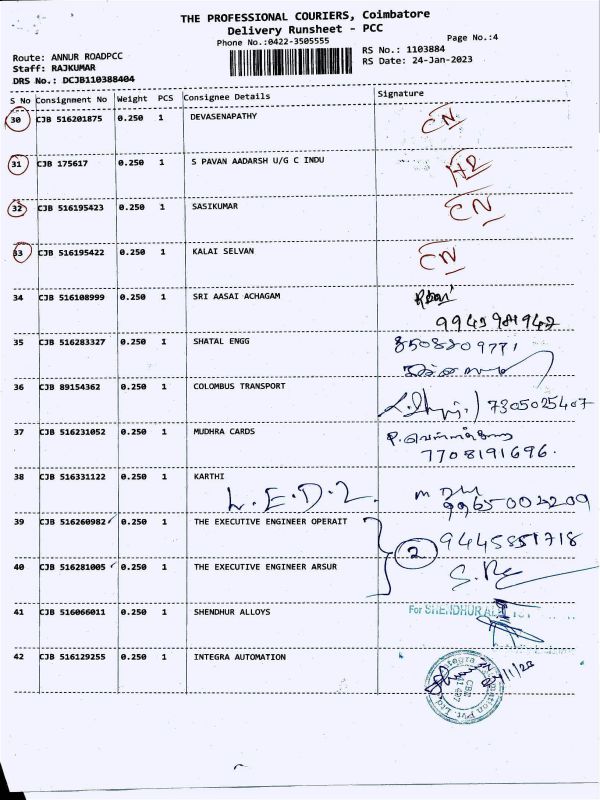 THE PROFESSIONAL COURIERS, Coimbatore
Delivery Runsheet - PCC
Phone No.:0422-3505555
Page No.:4
Route: ANNUR ROADPCC
RS No.: 1103884
Staff: RAJKUMAR
RS Date: 24-Jan-2023
DRS No.: DCJB110388404
S No Consignment No Weight PCS Consignee Details Signature
30 CJB 516201875 0.250 1 DEVASENAPATHY CN
31 CJB 175617 0.250 1 S PAVAN AADARSH U/G C INDU
32 CJB 516195423 0.250 1 SASIKUMAR CN
33 CJB 516195422 0.250 1 KALAI SELVAN CN
34 CJB 516108999 0.250 1 SRI AASAI ACHAGAM
35 CJB 516283327 0.250 1 SHATAL ENGG
36 CJB 89154362 0.250 1 COLOMBUS TRANSPORT
7305025407
37 CJB 516231052 0.250 1 MUDHRA CARDS
7708191696.
38 CJB 516331122 0.250 1 KARTHI
39 CJB 516260982 0.250 1 THE EXECUTIVE ENGINEER OPERAIT
2 9445851718
40 CJB 516281005 0.250 1 THE EXECUTIVE ENGINEER ARSUR
41 CJB 516066011 0.250 1 SHENDHUR ALLOYS
For SHENDHUR
42 CJB 516129255 0.250 1 INTEGRA AUTOMATION